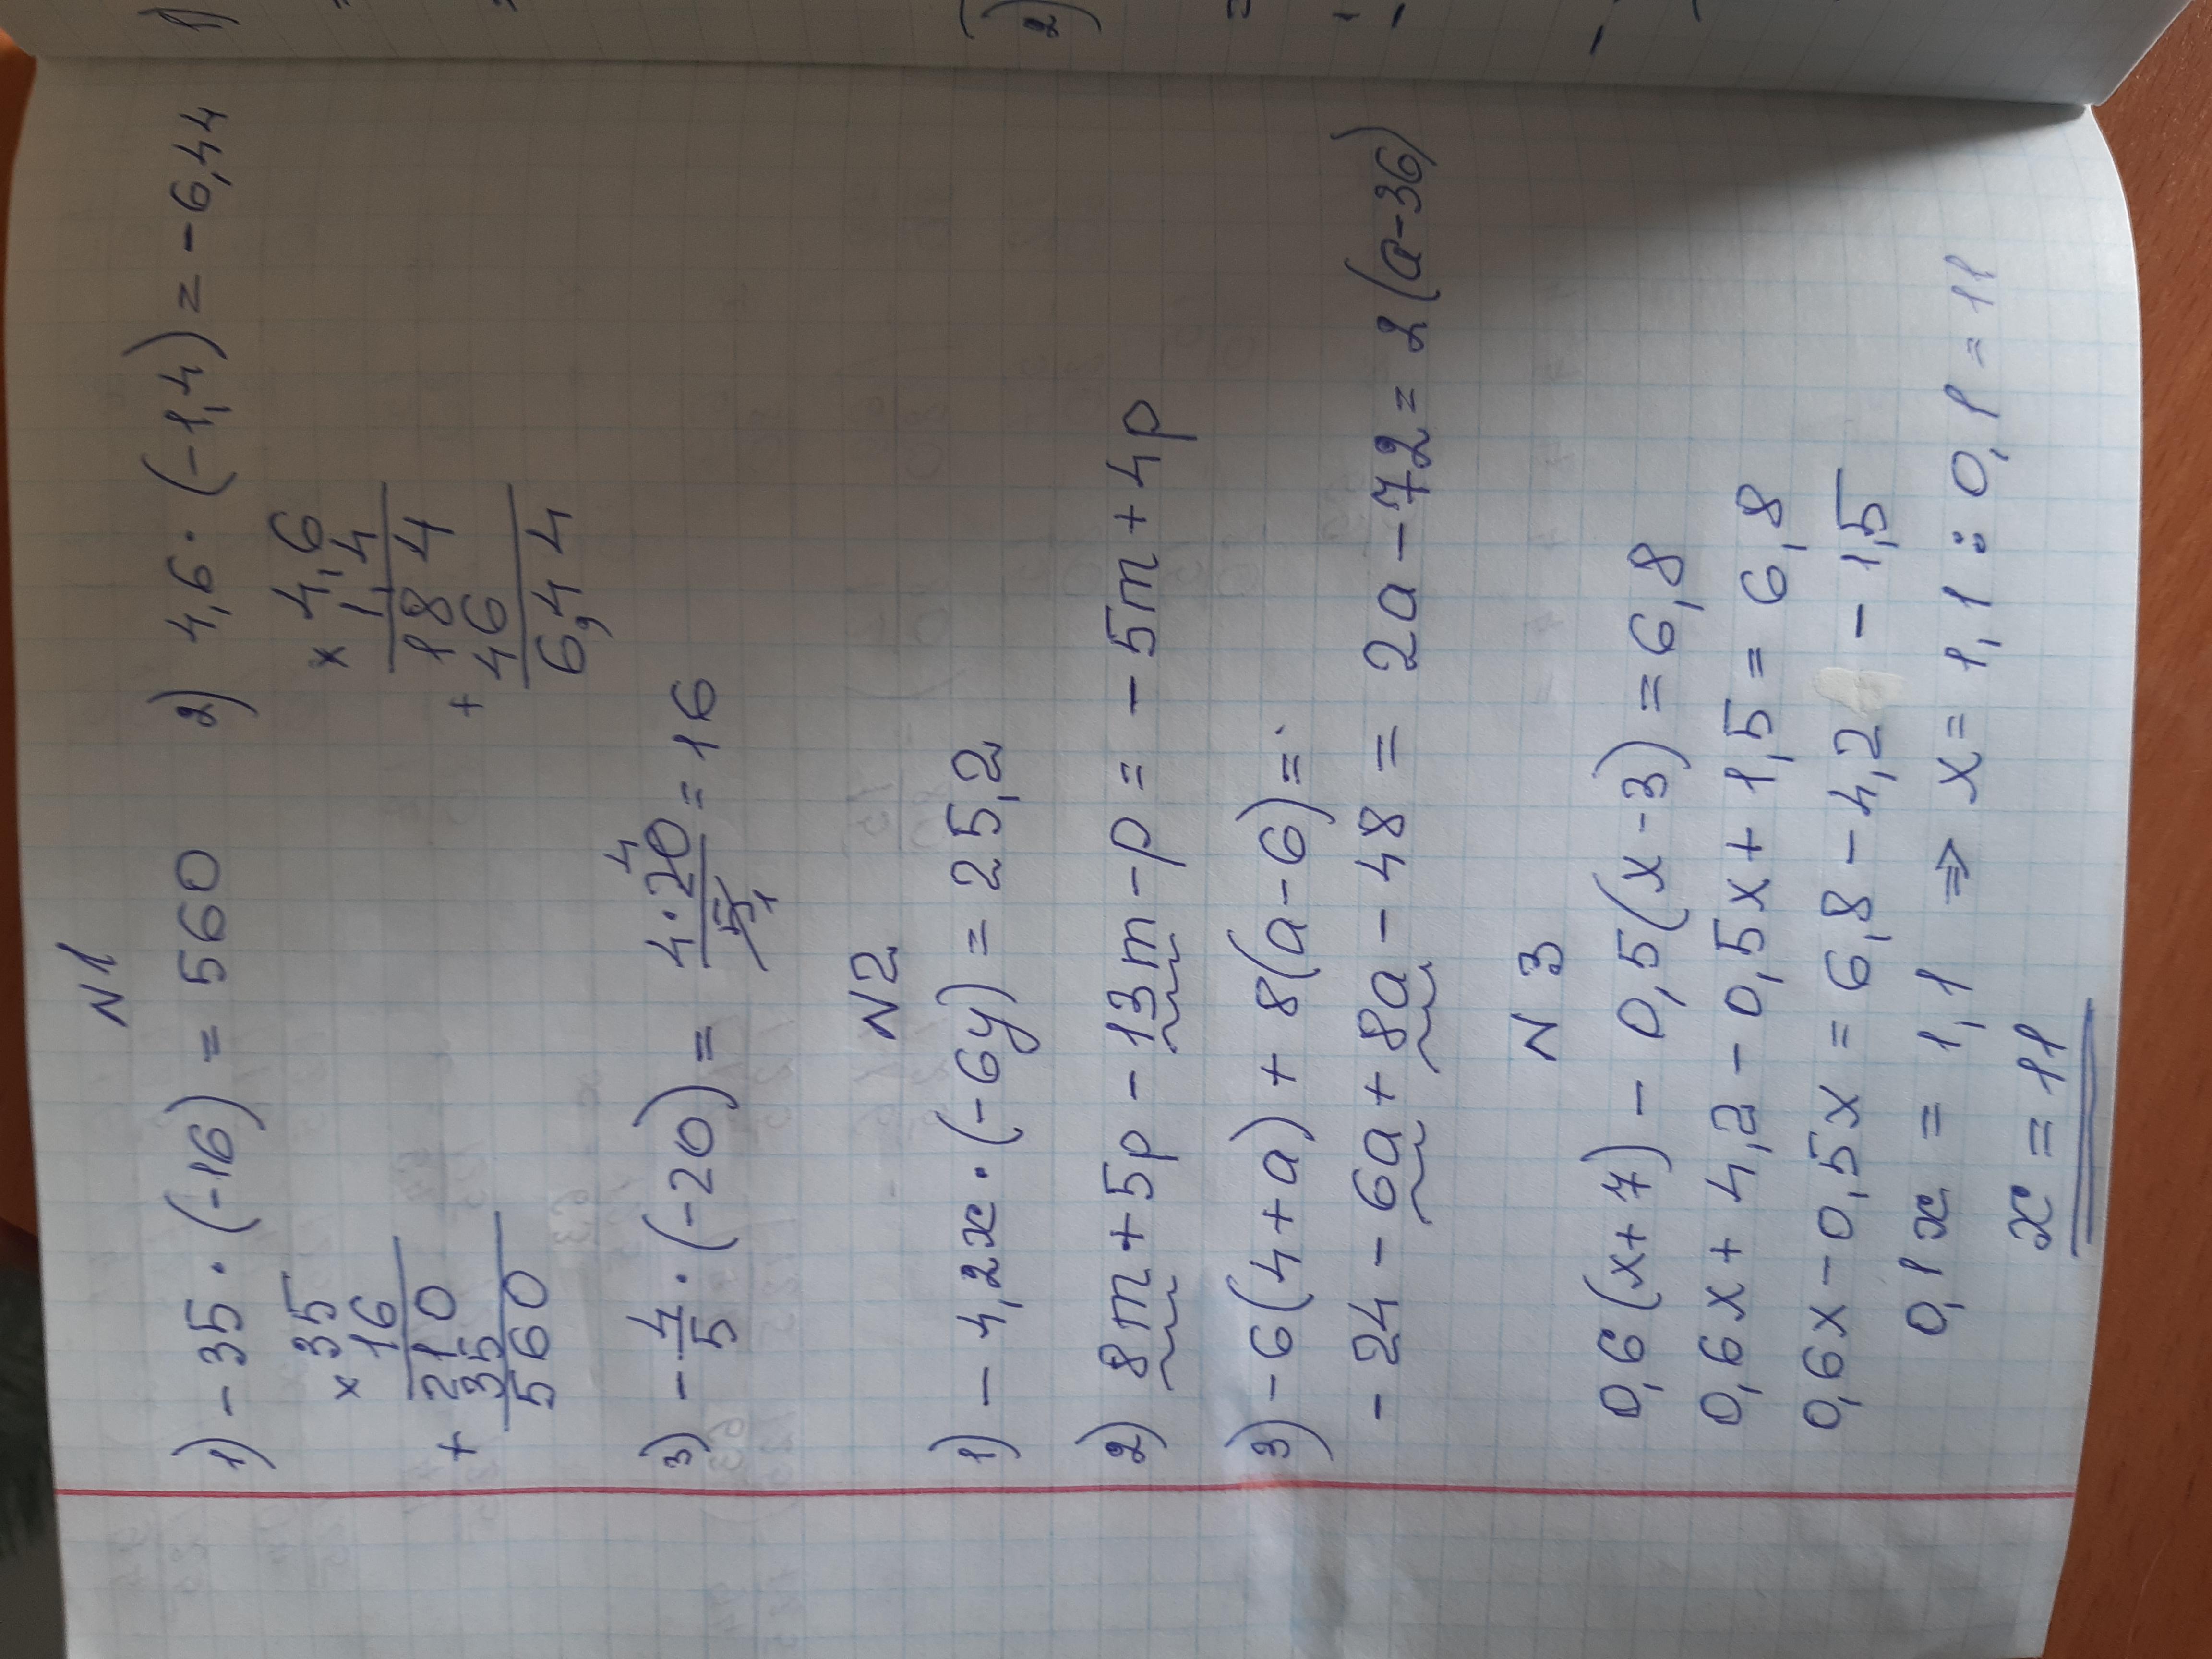 N1
1) -35·(-16) = 560 2) 4,6·(-1,4) = -6,44
× 35 × 4,6
16 1,4
210 184
+ 35 + 46
560 6,44
3) -4/5·(-20) = 4·20/5 = 16
4
1
N2
1) -4,2x·(-6y) = 25,2
2) 8m+5p-13m-p = -5m+4p
3) -6(4+a) + 8(a-6) =
-24-6a+8a-48 = 2a-72 = 2(a-36)
N 3
0,6(x+7) - 0,5(x-3) = 6,8
0,6x+4,2-0,5x+1,5 = 6,8
0,6x-0,5x = 6,8-4,2 -1,5
0,1x = 1,1 ⇒ x = 1,1 : 0,1 = 11
x = 11
1)
2)